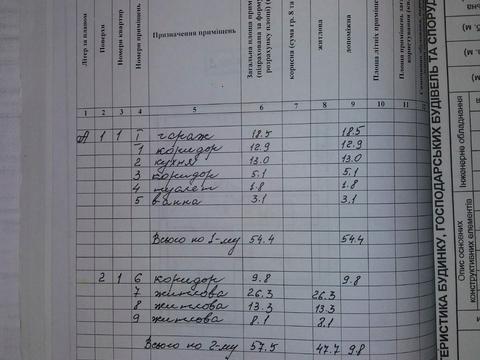 Літер за планом
Поверхи
Номери квартир
Номери приміщень
Призначення приміщень
Загальна площа
(підрахована за
розрахунку площі)
корисна (сума гр. 8 та
житлова
допоміжна
Площа літніх приміщень
1 2 3 4 5 6 7 8 9 10 11
А 1 1 I гараж 18.5 18.5
1 коридор 12.9 12.9
2 кухня 13.0 13.0
3 коридор 5.1 5.1
4 туалет 1.8 1.8
5 ванна 3.1 3.1
Всього по 1-му 54.4 54.4
2 1 6 коридор 9.8 9.8
7 житлова 26.3 26.3
8 житлова 13.3 13.3
9 житлова 8.1 8.1
Всього по 2-му 57.5 47.7 9.8
ТЕРИСТИКА БУДИНКУ, ГОСПОДАРСЬКИХ БУДІВЕЛЬ ТА СПОРУД
Опис основних
конструктивних елементів
Інженерне обладнання